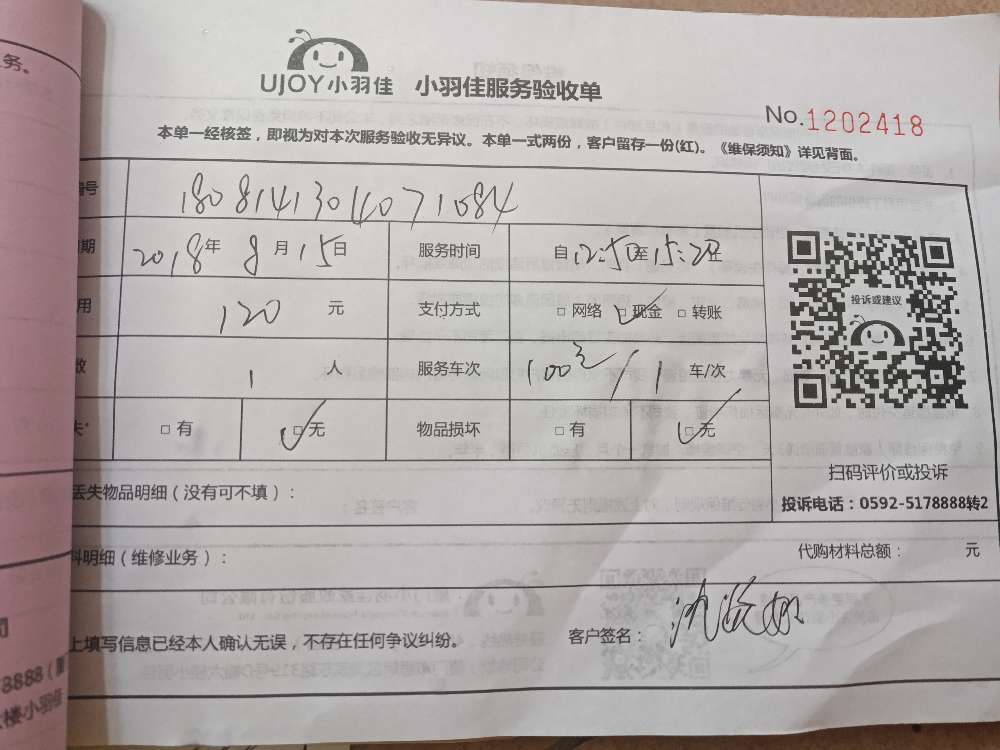 务。
UJOY小羽佳 小羽佳服务验收单
No.1202418
本单一经核签，即视为对本次服务验收无异议。本单一式两份，客户留存一份(红)。《维保须知》详见背面。
号 1808141304071084
期 2018年8月15日 服务时间 自12:50至15:20止
用 120 元 支付方式 □ 网络 □ 现金 □ 转账
数 1 人 服务车次 1 车/次
失* □ 有 □ 无 物品损坏 □ 有 □ 无
投诉或建议
扫码评价或投诉
投诉电话：0592-5178888转2
丢失物品明细（没有可不填）：
料明细（维修业务）：
代购材料总额： 元
上填写信息已经本人确认无误，不存在任何争议纠纷。
客户签名：
8888（
楼小羽佳